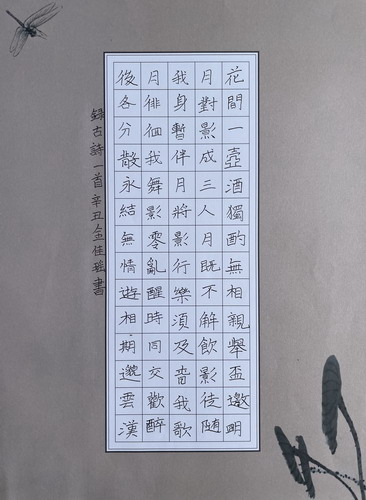 花間一壺酒獨酌無相親舉盃邀明
月對影成三人月既不解飲影徒随
我身暫伴月將影行樂須及春我歌
月徘徊我舞影零亂醒時同交歡醉
後各分散永結無情遊相期邈雲漢
録古詩一首辛丑金佳瑶書